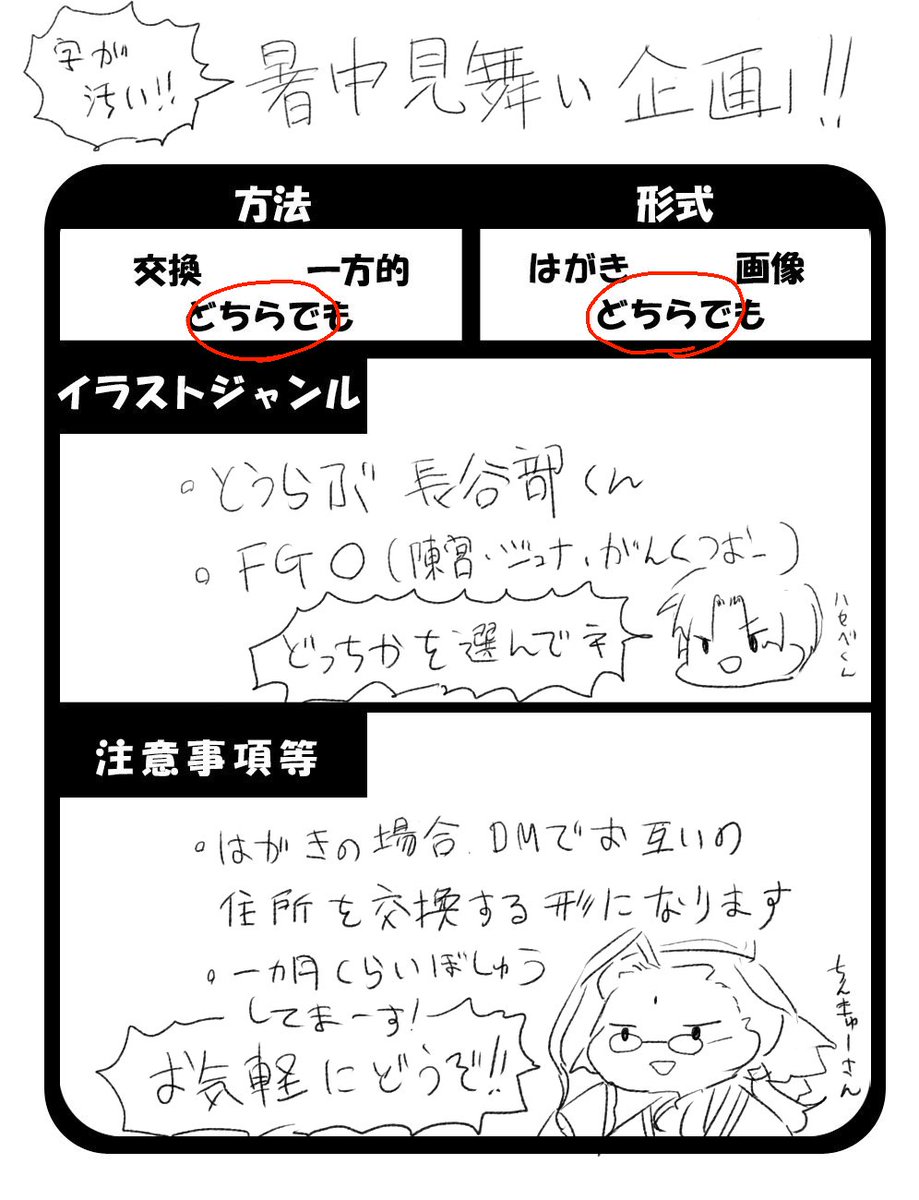 字が
汚い!!
暑中見舞い企画!!
方法
形式
交換 一方的
どちらでも
はがき 画像
どちらでも
イラストジャンル
。とうらぶ 長谷部くん
。FGO(陳宮・ジュナ・がんくつおー)
どっちかを選んでネ
ハセベくん
注意事項等
・はがきの場合、DMでお互いの
住所を交換する形になります
・一ヵ月くらいぼしゅう
してまーす!
お気軽にどうぞ!!
ちんきゅーさん